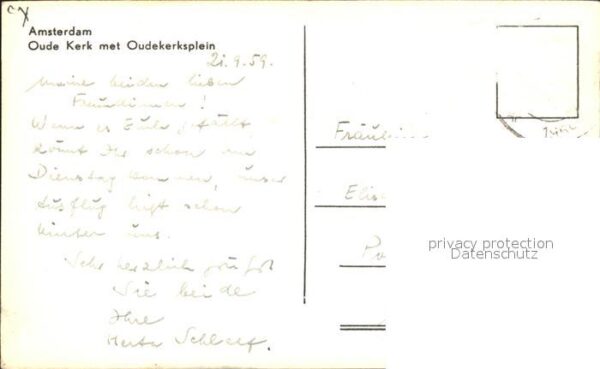 Amsterdam
Oude Kerk met Oudekerksplein
21.9.59.
Meine beiden lieben
Freundinnen!
Wenn es Euch gefällt,
könnt Ihr schon am
Dienstag kommen, unser
Ausflug liegt schon
hinter uns.
Sehr herzlich grüßt
Sie beide
Ihre
Herta
Fräulein
privacy protection
Datenschutz